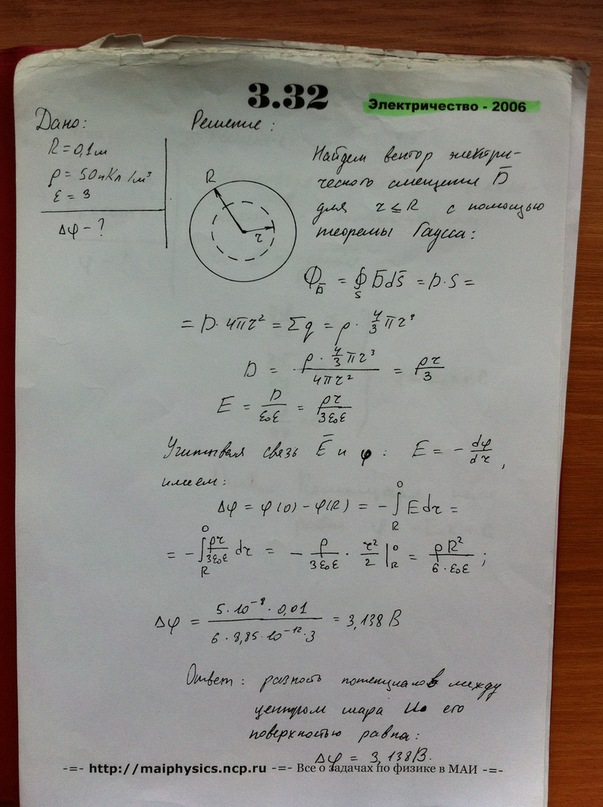 3.32
Электричество - 2006
Дано:
R = 0,1 м
ρ = 50 нКл/м³
ε = 3
Δφ - ?
Решение:
R
r
Найдем вектор электри-
ческого смещения D̄
для r ≤ R с помощью
теоремы Гаусса:
Φ_D̄ = ∮_S D̄dS̄ = D·S =
= D·4πr² = Σq = ρ·4/3 πr³
D = (ρ·4/3 πr³)/(4πr²) = ρr/3
E = D/(ε₀ε) = ρr/(3ε₀ε)
Учитывая связь Ē и φ: E = - dφ/dr,
имеем:
Δφ = φ(0) - φ(R) = - ∫_R^0 Edr =
= - ∫_R^0 ρr/(3ε₀ε) dr = - ρ/(3ε₀ε) · r²/2 |_R^0 = ρR²/(6·ε₀ε);
Δφ = (5·10⁻⁸·0,01)/(6·8,85·10⁻¹²·3) = 3,138 В
Ответ: разность потенциалов между
центром шара и его
поверхностью равна:
Δφ = 3,138 В.
-=- http://maiphysics.ncp.ru -=- Все о задачах по физике в МАИ -=-